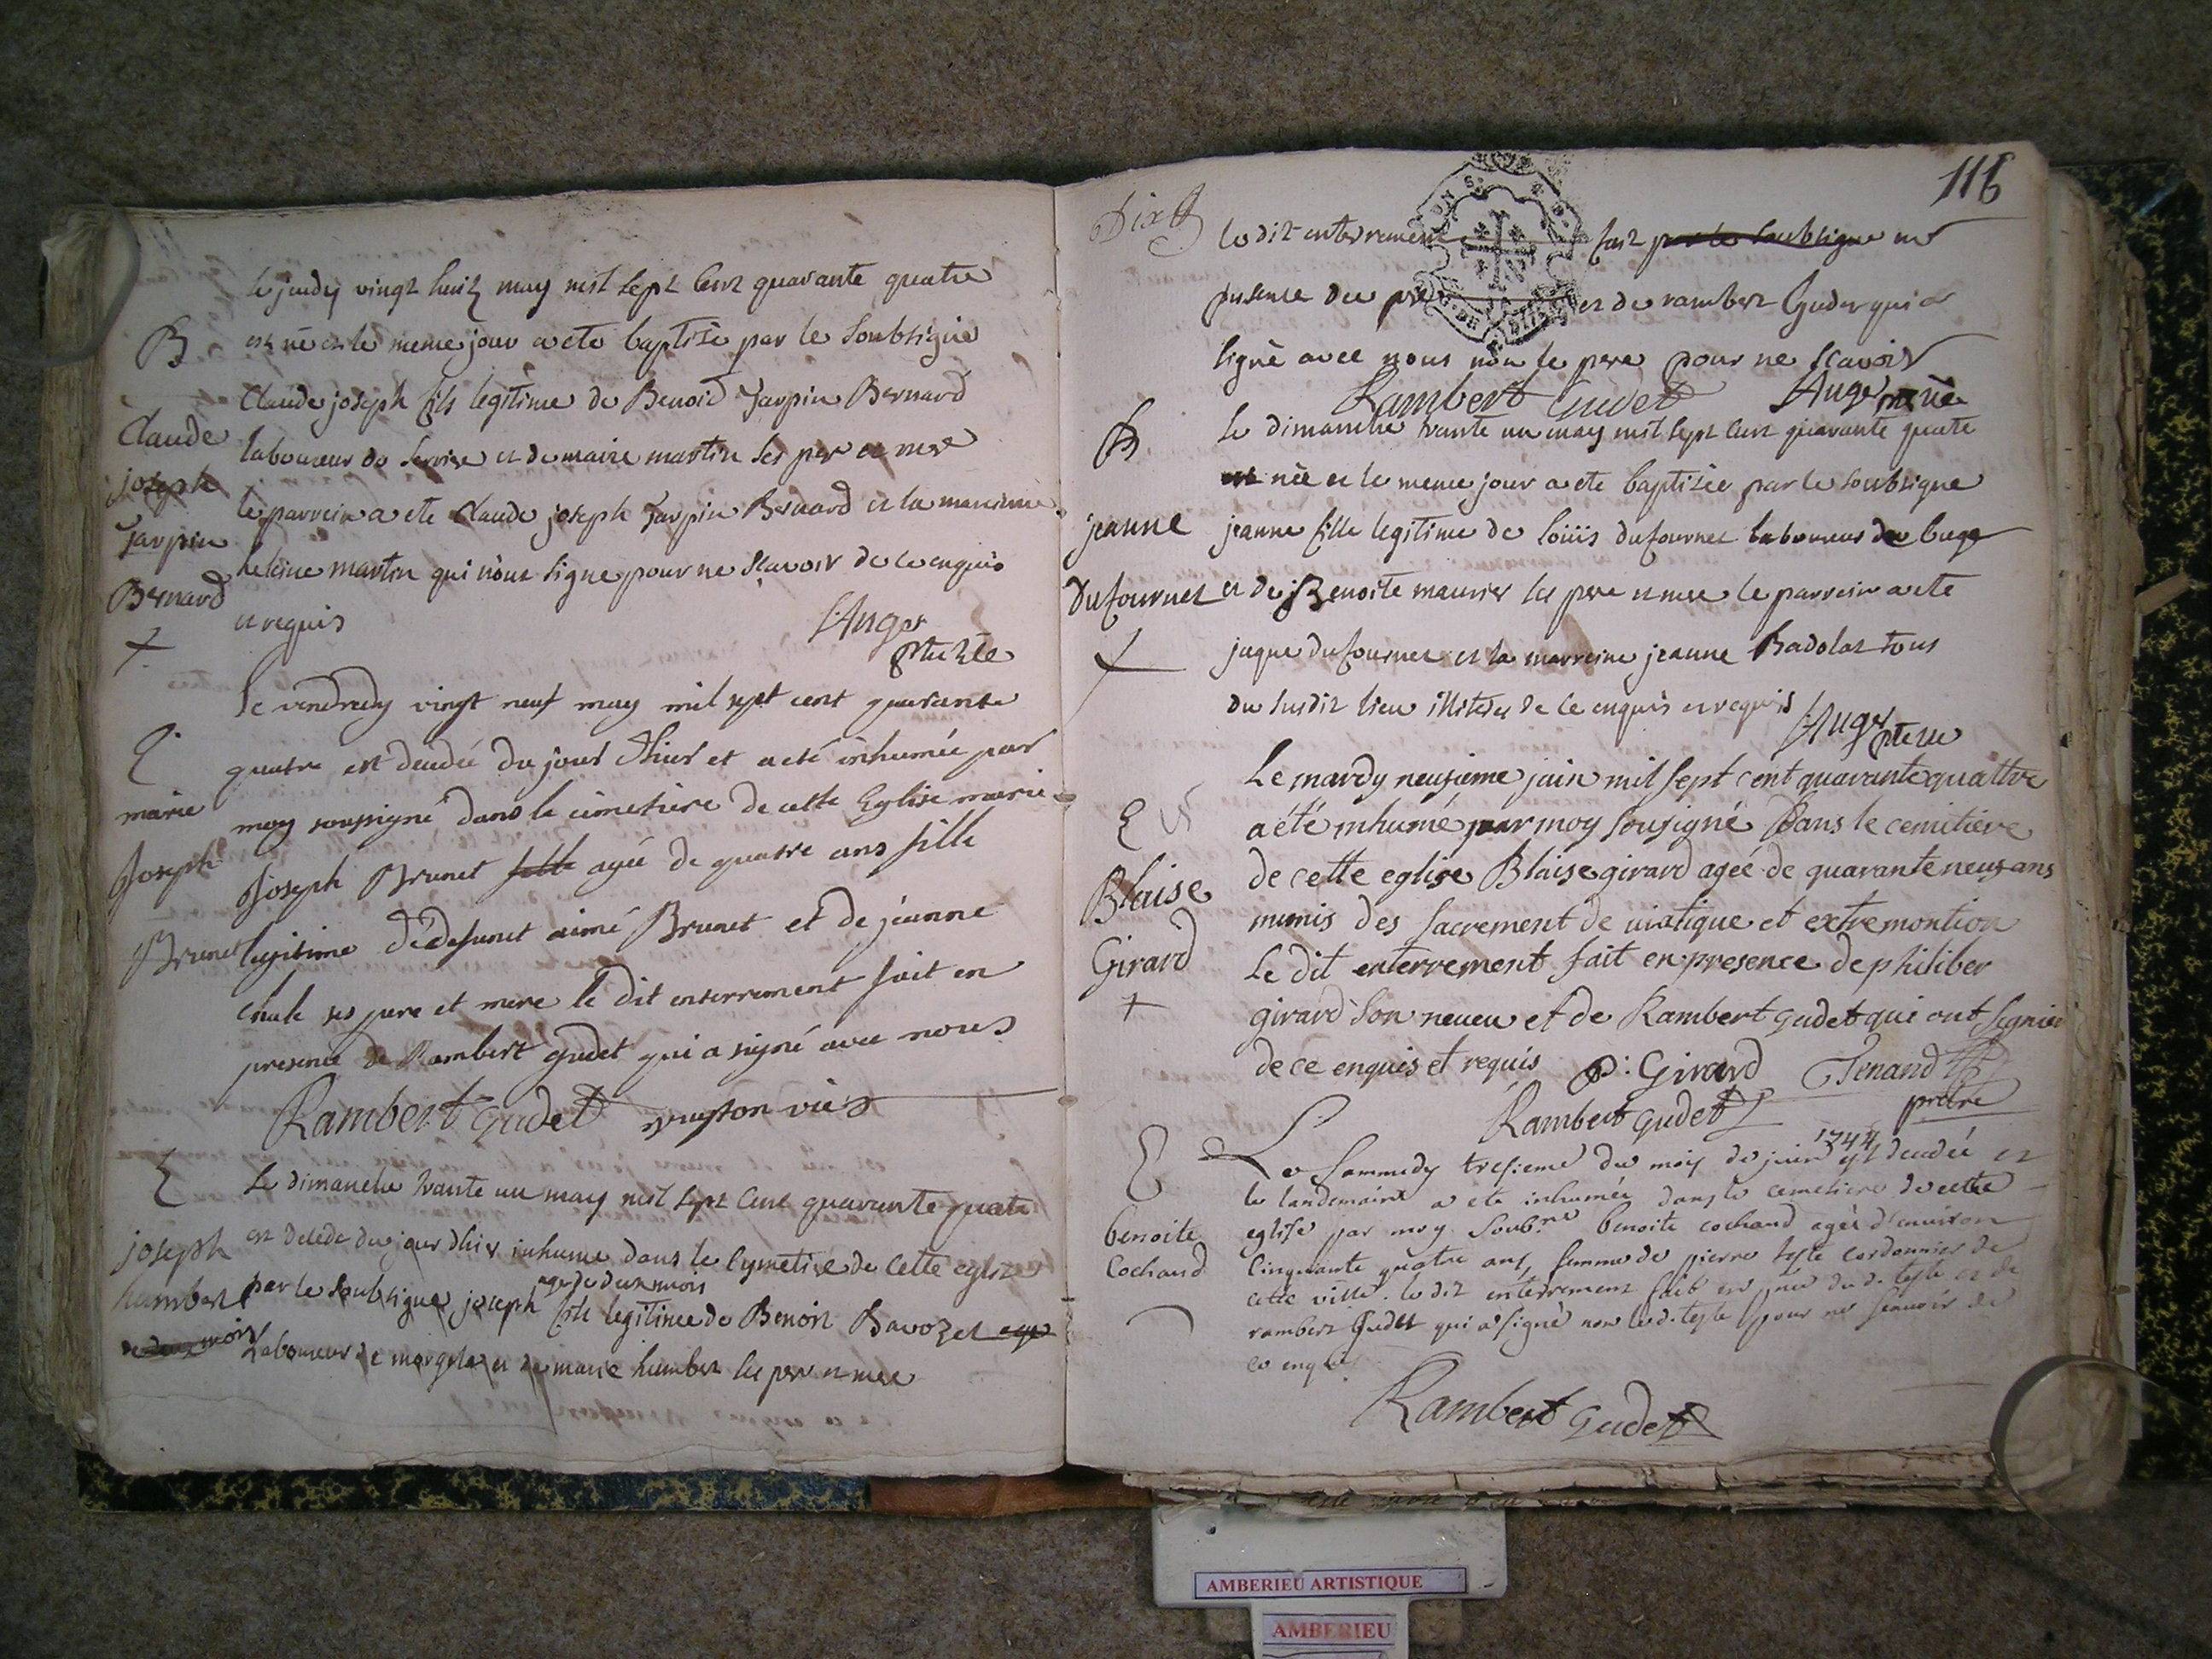 Le jeudy vingt huit may mil sept cent quarante quatre
B
est né et le meme jour a ete baptisé par le soubsigné
Claude joseph fils legitime de Benoid Jarpin Bernard
Claude
laboureur de et de marie martin ses pere et mere
joseph
le parrein a ete Claude joseph Jarpin Bernard et la marreine
Jarpin
martin qui nont signe pour ne scavoir de ce enquis
Bernard
et requis
Auger
Le vendredy vingt neuf may mil sept cent quarante
E
quatre est decedée du jour d'hier et a eté inhumée par
marie
moy soussigné dans le cimetiere de cette Eglise marie
Joseph
Joseph Brunet fille agée de quatre ans fille
Brunet
legitime de defunct aimé Brunet et de jeanne
ses pere et mere le dit enterrement fait en
presence de Rambert gudet qui a signé avec nous
Rambert Gudet
E
Le dimanche trante un may mil sept cent quarante quatre
joseph
est decede du jour dhier inhume dans le cymetiere de cette eglise
age de deux mois
humbert
par le soubsigne joseph fils legitime de Benoit Savozet age
de deux mois
Laboureur de et de marie humbert ses pere et mere
116
Dix
le dit enterrement fait par le soubsigne en
presence du pere et de rambert Gudet qui a
signé avec nous non le pere pour ne scavoir
Rambert Gudet Auger
B
Le dimanche trante un may mil sept cent quarante quatre
est née et le meme jour a ete baptisée par le soubsigne
jeanne
jeanne fille legitime de loüis dufournet laboureur
dufournet
et de Benoite maurier ses pere et mere le parrein a ete
jaque dufournet et la marreine jeanne Badolat tous
du susdit lieu illiteres de ce enquis et requis
Auger
Le mardy neufieme juin mil sept cent quarante quattre
E
a été inhumé par moy sousigné Dans le cemitiere
de cette eglise Blaise girard ageé de quarante neuf ans
Blaise
munis des sacrement de viatique et extremontion
Girard
Le dit enterrement fait en presence de philiber
girard son neveu et de Rambert gudet qui ont signié
de ce enquis et requis P: Girard Tenand
Rambert Gudet pretre
1744
E
Le Sammedy tresieme du moy de juin est decedée et
le landemain a ete inhumée dans le cemetiere de cette
benoite
eglise par moy soub.né benoite cochand agée d'environ
Cochand
Cinquante quatre ans, femme de pierre teste cordonnier de
cette ville. le dit enterrement fait en pnce dud. teste et de
rambert Gudet qui a signé non led. teste pour ne scavoir de
ce enquis
Rambert Gudet
AMBERIEU ARTISTIQUE
AMBERIEU